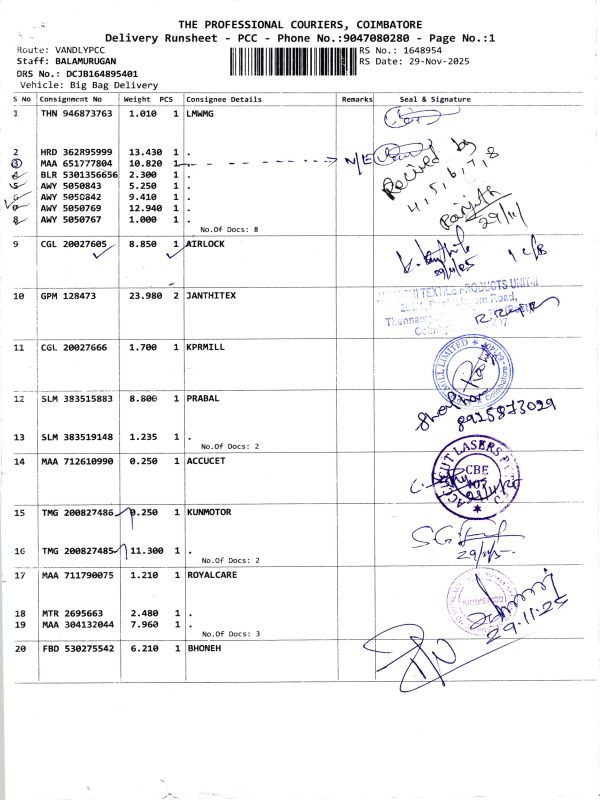 THE PROFESSIONAL COURIERS, COIMBATORE
Delivery Runsheet - PCC - Phone No.:9047080280 - Page No.:1
Route: VANDLYPCC
RS No.: 1648954
Staff: BALAMURUGAN
RS Date: 29-Nov-2025
DRS No.: DCJB164895401
Vehicle: Big Bag Delivery
S No Consignment No Weight PCS Consignee Details Remarks Seal & Signature
1 THN 946873763 1.010 1 LMWMG
2 HRD 362895999 13.430 1 .
3 MAA 651777804 10.820 1 N/E
4 BLR 5301356656 2.300 1 .
5 AWY 5050843 5.250 1 .
AWY 5050842 9.410 1 .
AWY 5050769 12.940 1 .
8 AWY 5050767 1.000 1 .
No.Of Docs: 8
Recived by
4,5,6,7,8
29/11
9 CGL 20027605 8.850 1 AIRLOCK
29/11/25
10 GPM 128473 23.980 2 JANTHITEX
TEXTILE PRODUCTS UNIT-II
Road,
11 CGL 20027666 1.700 1 KPRMILL
MILL LIMITED
12 SLM 383515883 8.800 1 PRABAL
8925873029
13 SLM 383519148 1.235 1 .
No.Of Docs: 2
14 MAA 712610990 0.250 1 ACCUCET
LASERS
CBE
15 TMG 200827486 0.250 1 KUNMOTOR
16 TMG 200827485 11.300 1 .
No.Of Docs: 2
29/11/25
17 MAA 711790075 1.210 1 ROYALCARE
18 MTR 2695663 2.480 1 .
19 MAA 304132044 7.960 1 .
No.Of Docs: 3
29.11.25
20 FBD 530275542 6.210 1 BHONEH